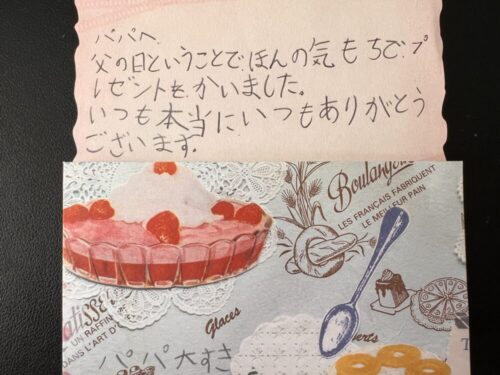 パパへ
父の日ということでほんの気もちでプ
レゼントをかいました。
いつも本当にいつもありがとう
ございます。
Boulange
LES FRANÇAIS FABRIQUENT
LE MEILLEUR PAIN
UN RAFFIN
DANS L'ART D'
Glaces
パパ大すき